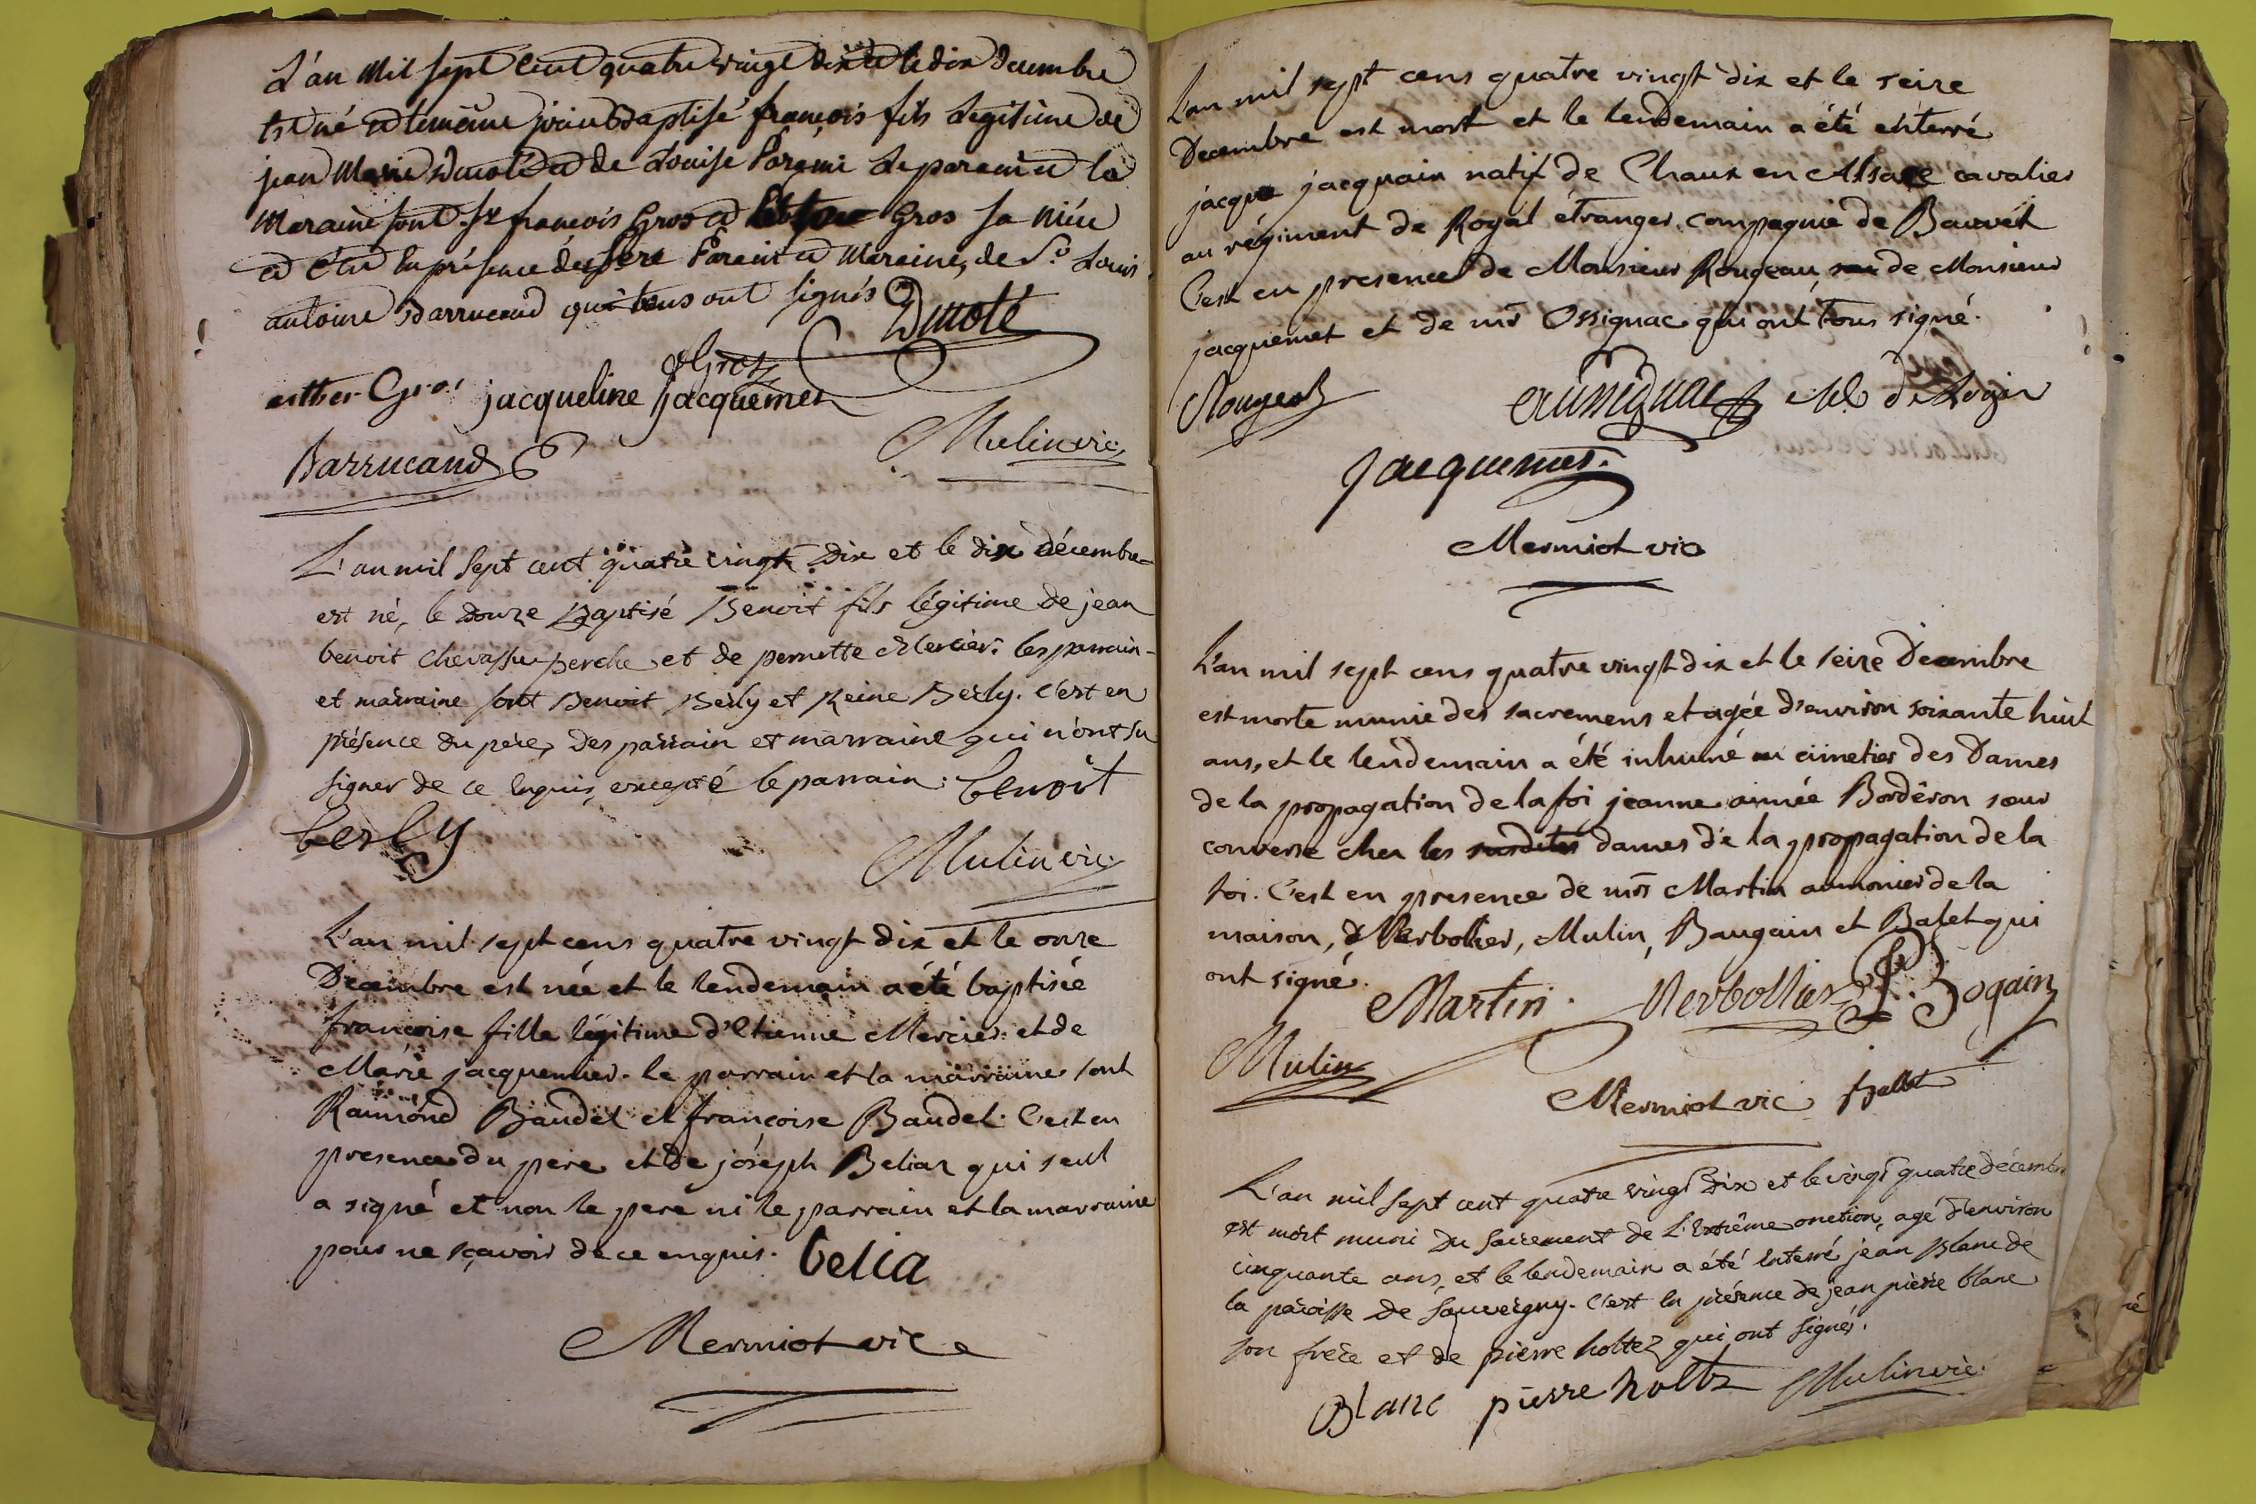 L'an Mil sept Cent quatre vingt dix et le dix decembre
Est né et le même jour Baptisé françois fils Legitime de
jean Marie Ducoté et de Louise Paremi Le parein et la
Maraine sont Sr françois Gros et Gros sa Niéce
a Eté En présence des père Parein et Maraine, de Sr Louis
antoine Barrucand qui tous ont signés Ducoté
esther Gros jacqueline jacquemet Gros
Barrucand Mulin vic.
L'an mil sept cent quatre vingt Dix et le dix décembre
est né, le Douze Baptisé Benoit fils légitime De jean
benoit chevassu-perche et de pernette Mercier. les parrain
et marraine sont Benoit Berly et Reine Berly. C'est en
présence du père, Des parrain et marraine qui n'ont su
signer de ce Enquis, excepté le parrain. benoît
berly
Mulin vic.
L'an mil sept cens quatre vingt dix et le onze
Decembre est née et le lendemain a été baptisée
françoise fille légitime d'Etienne Mercier et de
Marie jacquemier. le parrain et la marraine sont
Raimond Baudet et françoise Baudet. C'est en
presence du pere et de jóseph Beliaz qui seul
a signé et non le pere ni le parrain et la marraine
pour ne sçavoir de ce enquis. belia
Mermiot vic
L'an mil sept cens quatre vingt dix et le seize
Decembre est mort et le lendemain a été enterré
jacque jacquain natif de Chaux en Alsace cavalier
au régiment de Royal étranger compagnie de Bauvét
C'est en presence de Monsieur Rougeau, de Monsieur
jacquemet et de mr Ossignac qui ont tous signé.
Rougeot aussignac Ml d Logis
Jacquemet.
Mermiot vic
L'an mil sept cens quatre vingt dix et le seize Decembre
est morte munie des sacremens et agée d'environ soixante huit
ans, et le lendemain a été inhumé au cimetier des Dames
de la propagation de la foi jeanne aimée Bordéron sœur
converse chez les susdites dames de la propagation de la
foi. C'est en presence de mrs Martin aumonier de la
maison, Verbolier, Mulin, Baugain et Balet qui
ont signé. Martin. Verbollier P. Bogain
Mulin
Mermiot vic Ballet
L'an mil sept cent quatre vingt Dix et le vingt quatre décembre
est mort muni Du sacrement de L'Extrême onction, agé d'environ
cinquante ans, et le lendemain a été Enterré jean Blanc de
la paroisse De Sauvergny. C'est En présence de jean pierre blanc
son frère et de pierre holtez qui ont signés.
Blanc pierre holtz Mulin vic.